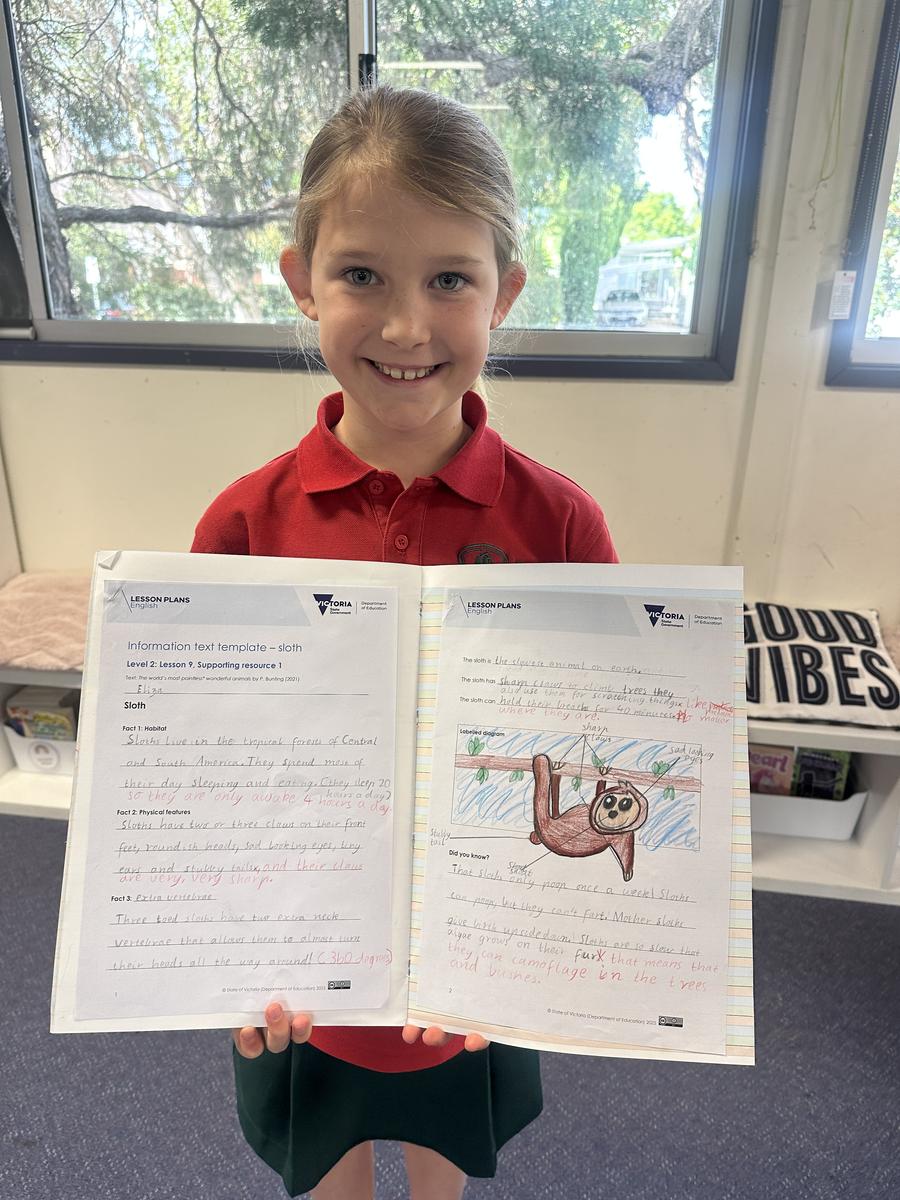 LESSON PLANS
English
VICTORIA
State
Government
Department
of Education
Information text template – sloth
Level 2: Lesson 9, Supporting resource 1
Text: The world's most pointless* wonderful animals by P. Bunting (2021)
Eliza
Sloth
Fact 1: Habitat
Sloths live in the tropical forests of Central
and South America. They spend most of
their day sleeping and eating. (they sleep 20
hours a day)
so they are only awake 4 hours a day.
Fact 2: Physical features
Sloths have two or three claws on their front
feet, roundish heads, sad looking eyes, tiny
ears and stubby tails, and their claws
are very, very sharp.
Fact 3: extra vertebrae
Three toed sloths have two extra neck
vertebrae that allows them to almost turn
their heads all the way around! (360 degrees)
1
© State of Victoria (Department of Education) 2023
LESSON PLANS
English
VICTORIA
State
Government
Department
of Education
The sloth is the slowest animal on earth.
The sloth has sharp claws to climb trees they
also use them for scratching things
The sloth can hold their breath for 40 minutes no matter
where they are.
Labelled diagram
sharp
claws
sad looking
eyes
stubby
tail
Did you know?
That sloth only poop once a week! Sloths
can poop, but they can't fart. Mother sloths
give birth upside down! Sloths are so slow that
algae grows on their fur that means that
they can camoflage in the trees
and bushes.
2
© State of Victoria (Department of Education) 2023
GOOD
VIBES